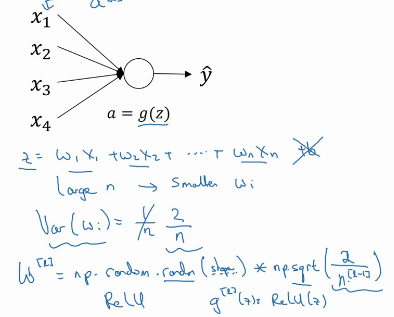 x₁
x₂
x₃
x₄
ŷ
a = g(z)
z = w₁x₁ + w₂x₂ + ···· + wₙxₙ + b
Large n → Smaller wᵢ
Var(wᵢ) = 1/n 2/n
W^[l] = np.random.randn(shape) * np.sqrt(2/n^[l-1])
ReLU g^[l](z) = ReLU(z)